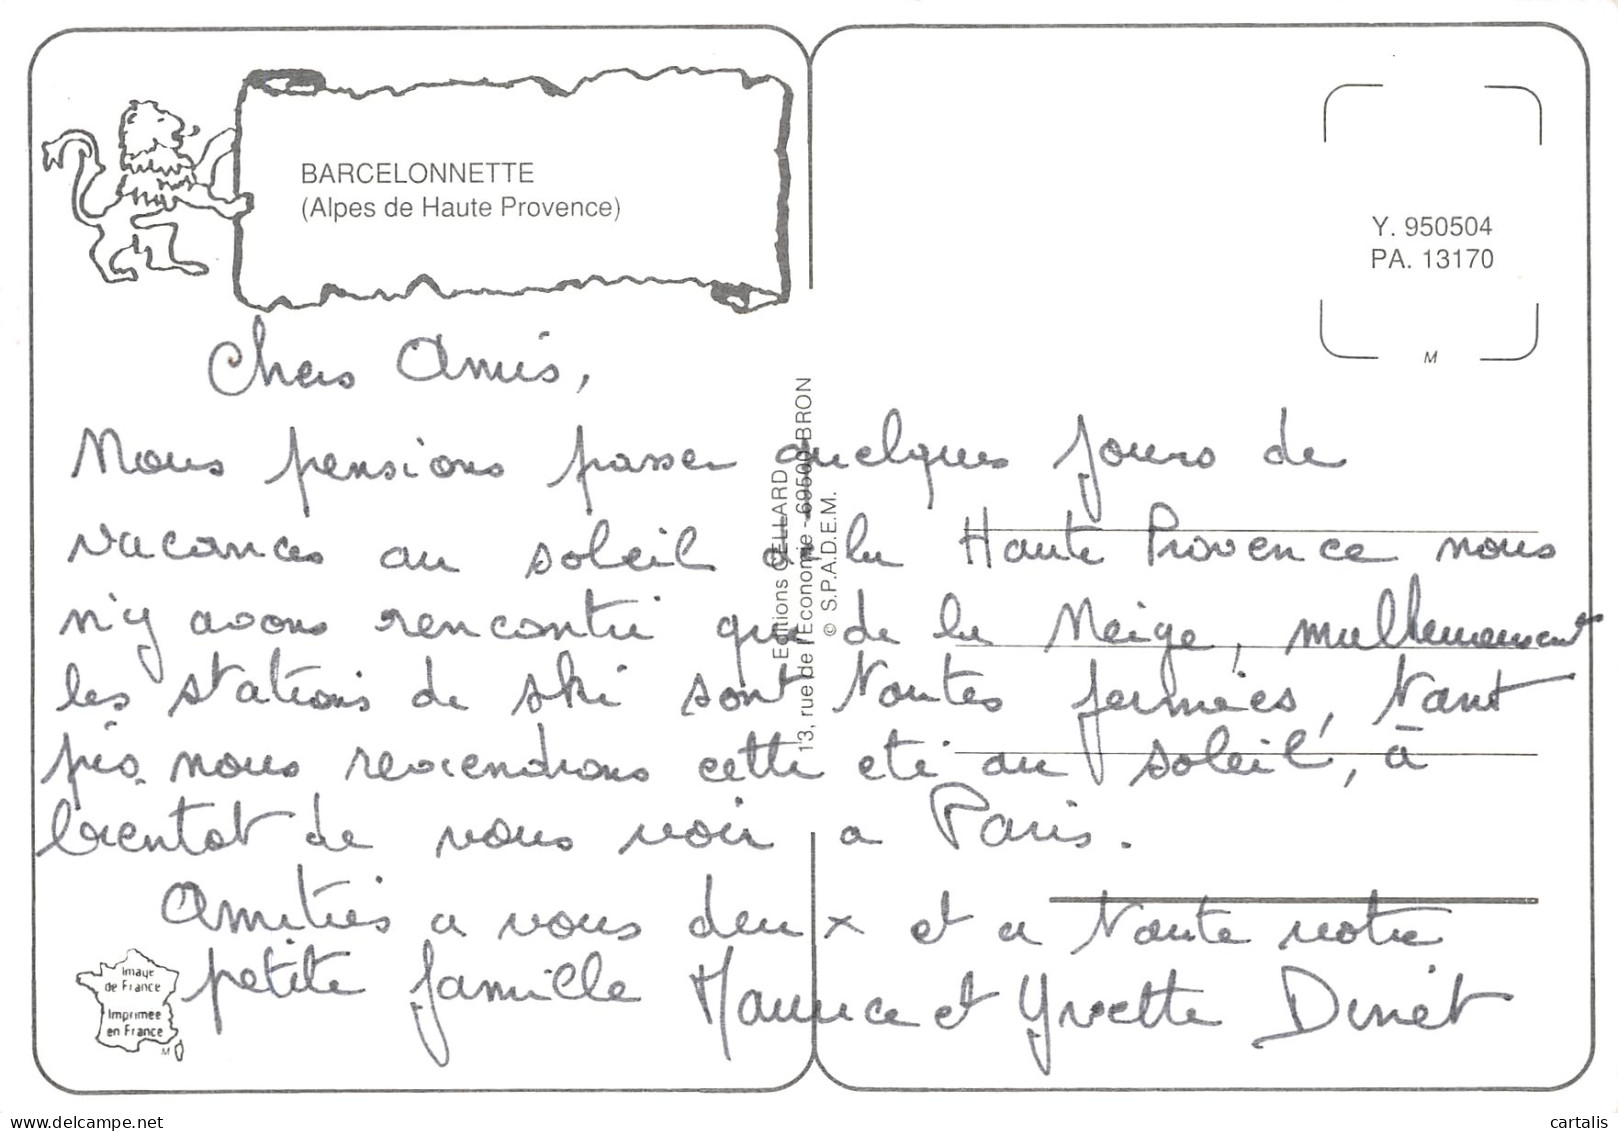 BARCELONNETTE
(Alpes de Haute Provence)
Y. 950504
PA. 13170
M
Chers Amis,
Nous pensions passer quelques jours de
vacances au soleil de la Haute Provence nous
n'y avons rencontré que de la Neige,
les stations de ski sont toutes fermées, tant
pis nous reviendrons cette été au soleil, à
bientot de vous voir a Paris.
Amitiés a vous deux et a toute votre
petite famille Maurice et Yvette Dinet
Editions CELLARD
13, rue de l'Economie - 69500 BRON
© S.P.A.D.E.M.
Image
de France
Imprimée
en France
M
cartalis